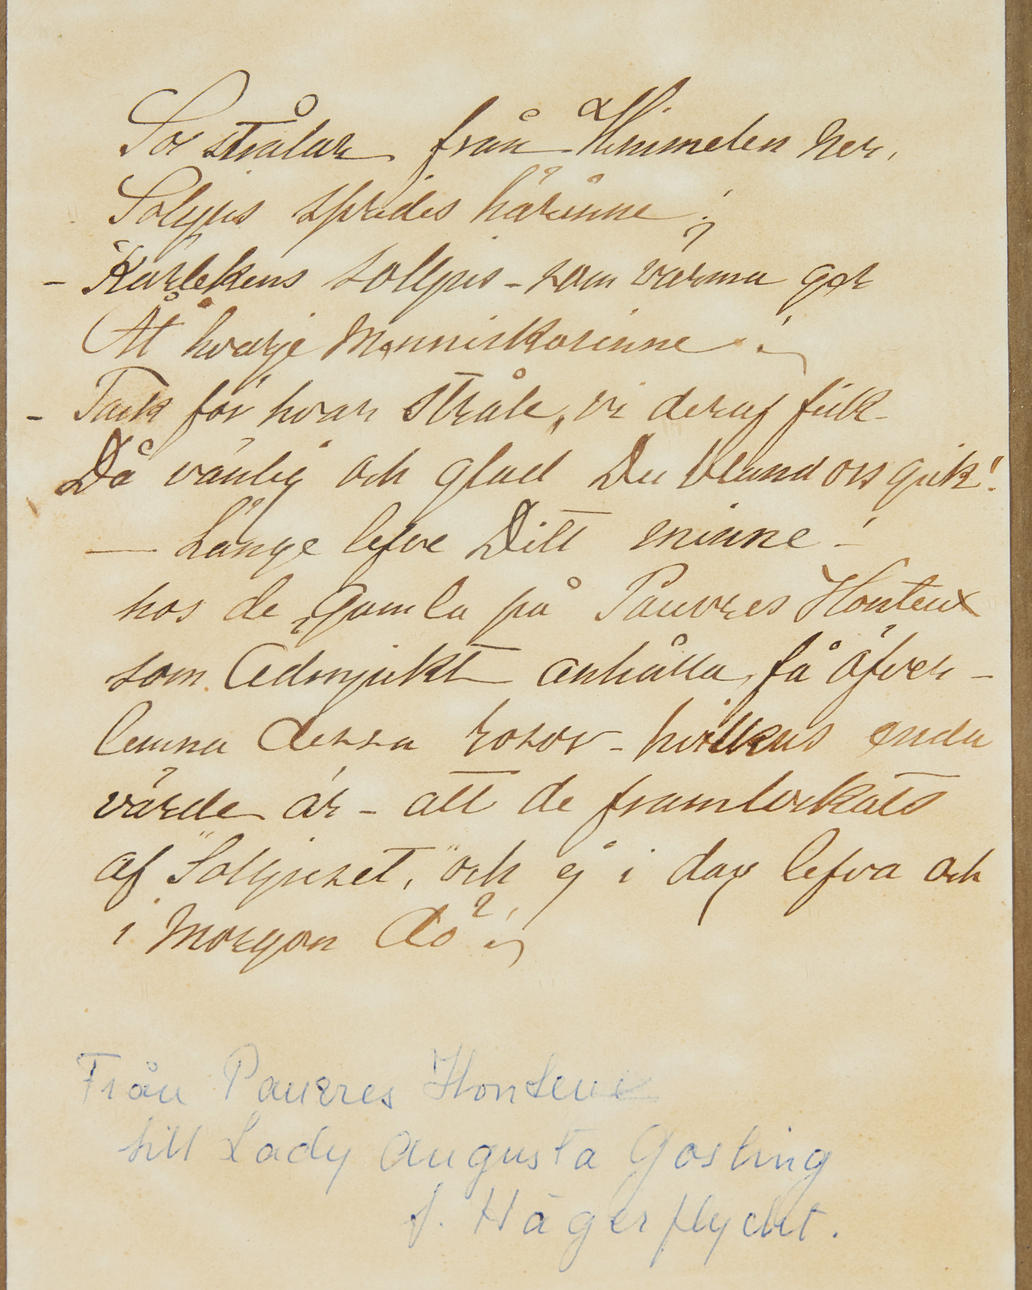 Sol strålar från Himmelen ner,
Solljus sprides härinne!
- Kärlekens solljus - som värma ger
Åt hvarje Menniskosinne!
- Tack för hvar stråle, vi deraf fick -
Då vänlig och glad Du bland oss gick!
— Länge lefve Ditt minne! -
hos de gamla på Pauvres Honteux
som Ödmjukt anhålla, få öfver-
lemna dessa rosor - hvilkens enda
värde är - att de framlockats
af "Solljuset," och ej i dag lefva och
i Morgon dö!
Från Pauvres Honteux
till Lady Augusta Gosling
f. Hägerflycht.